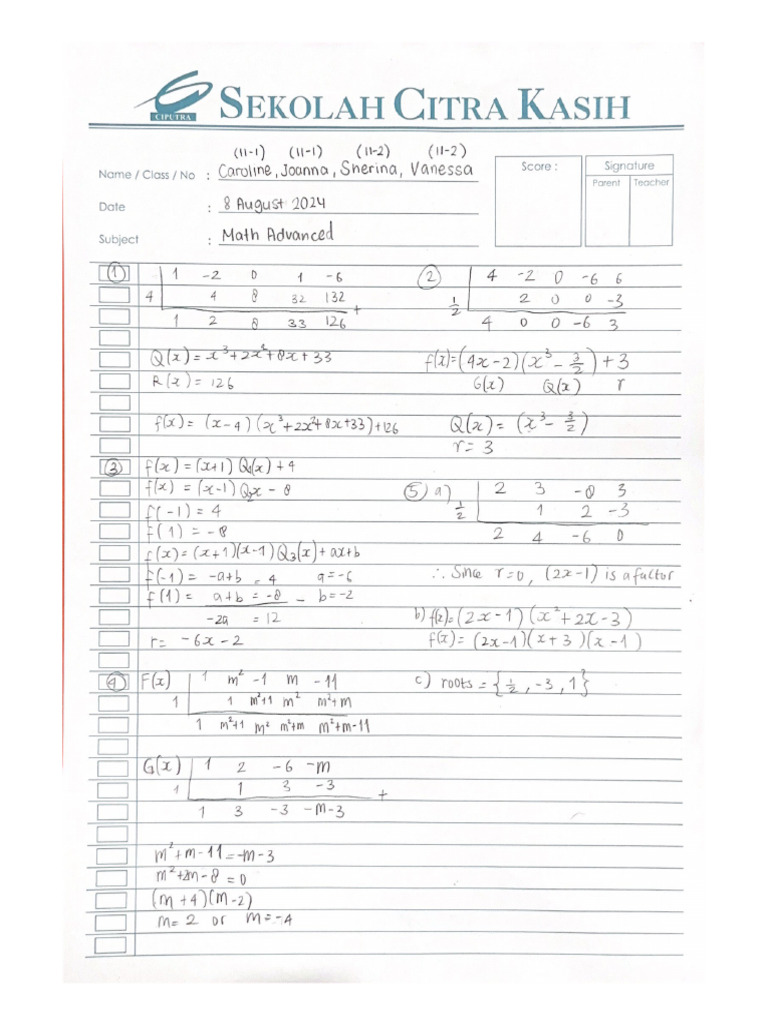 CIPUTRA
SEKOLAH CITRA KASIH
(11-1) (11-1) (11-2) (11-2)
Name / Class / No : Caroline, Joanna, Sherina, Vanessa
Date : 8 August 2024
Subject : Math Advanced
Score :
Signature
Parent Teacher
①
1 -2 0 1 -6
4 4 8 32 132 +
1 2 8 33 126
Q(x) = x³+2x²+8x+33
R(x) = 126
f(x) = (x-4)(x³+2x²+8x+33)+126
②
4 -2 0 -6 6
1/2 2 0 0 -3
4 0 0 -6 3
f(x)=(4x-2)(x³-3/2)+3
G(x) Q(x) r
Q(x) = (x³-3/2)
r= 3
③ f(x) = (x+1) Q₁(x) + 4
f(x) = (x-1) Q₂x - 8
f(-1) = 4
f(1) = -8
f(x)= (x+1)(x-1)Q₃(x)+ax+b
f(-1) = -a+b = 4 a=-6
f(1) = a+b = -8 - b=-2
-2a = 12
r= -6x-2
④ F(x) 1 m² -1 m -11
1 1 m²+1 m² m²+m
1 m²+1 m² m²+m m²+m-11
G(x) 1 2 -6 -m
1 1 3 -3 +
1 3 -3 -m-3
m²+m-11=-m-3
m²+2m-8=0
(m+4)(m-2)
m= 2 or m=-4
⑤ a) 2 3 -8 3
1/2 1 2 -3
2 4 -6 0
∴ Since r=0, (2x-1) is a factor
b) f(x)= (2x-1)(x²+2x-3)
f(x)= (2x-1)(x+3)(x-1)
c) roots = {1/2, -3, 1}